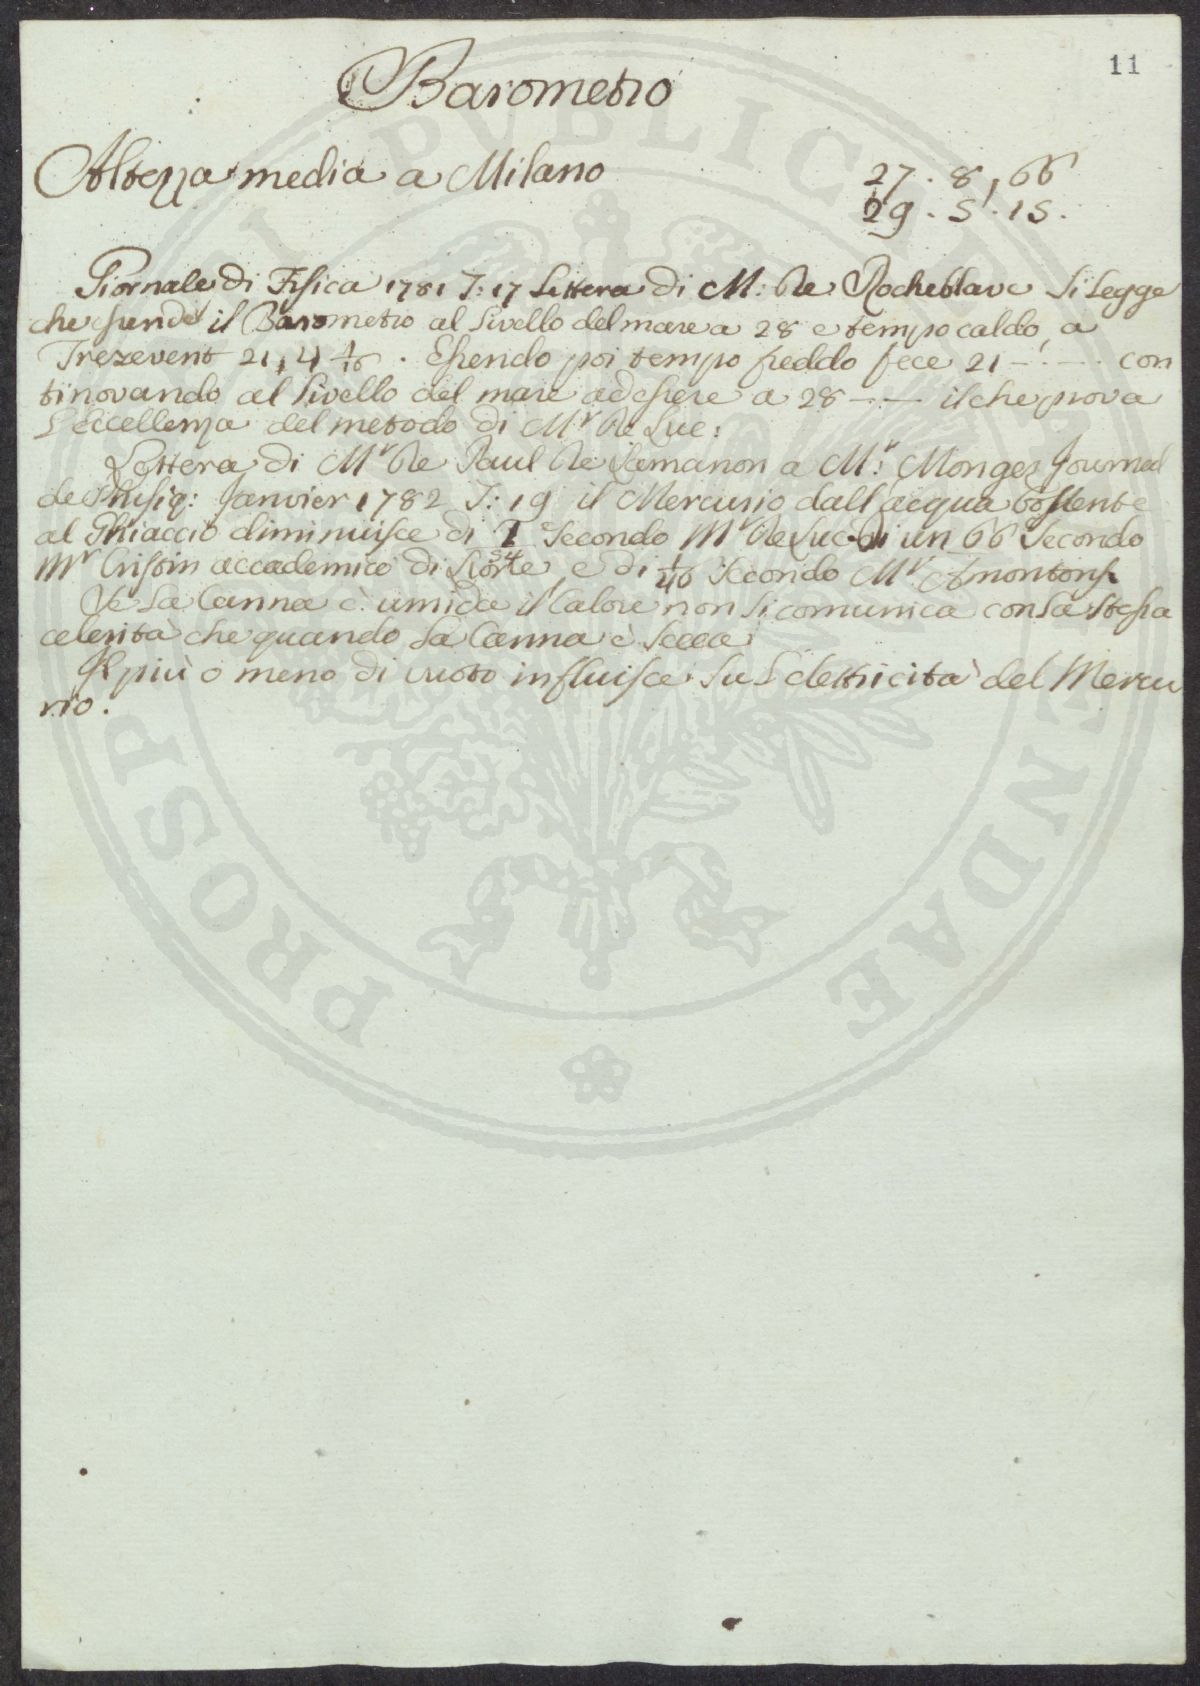 11
Barometro
Altezza media a Milano 27. 8, 66
29. 5. 15.
Giornale di Fisica 1781 T: 17 Lettera di M: De Rocheblave si legge
che essendo il Barometro al livello del mare a 28 e tempo caldo, a
Trezevent 21, 4 1/16. Essendo poi tempo freddo fece 21 – . – con
tinovando al livello del mare ad essere a 28 – . – il che prova
L'eccellenza del metodo di Mr De Luc:
Lettera di Mr De Paul De Lamanon a Mr: Mongez Journal
de Phisiq: Janvier 1782 T: 19 il Mercurio dall'acqua bollente
al Ghiaccio diminuisce di 1/54 secondo Mr De Luc di un 66 secondo
Mr Cristin accademico di e di secondo Mr Amontons
Se la Canna è umida il Calore non si comunica con la stessa
celerità che quando la Canna è secca
Il più o meno di vuoto influisce su l'elettricità del Mercu
rio.
PUBLICAE COMMODA PROSPICIENDAE